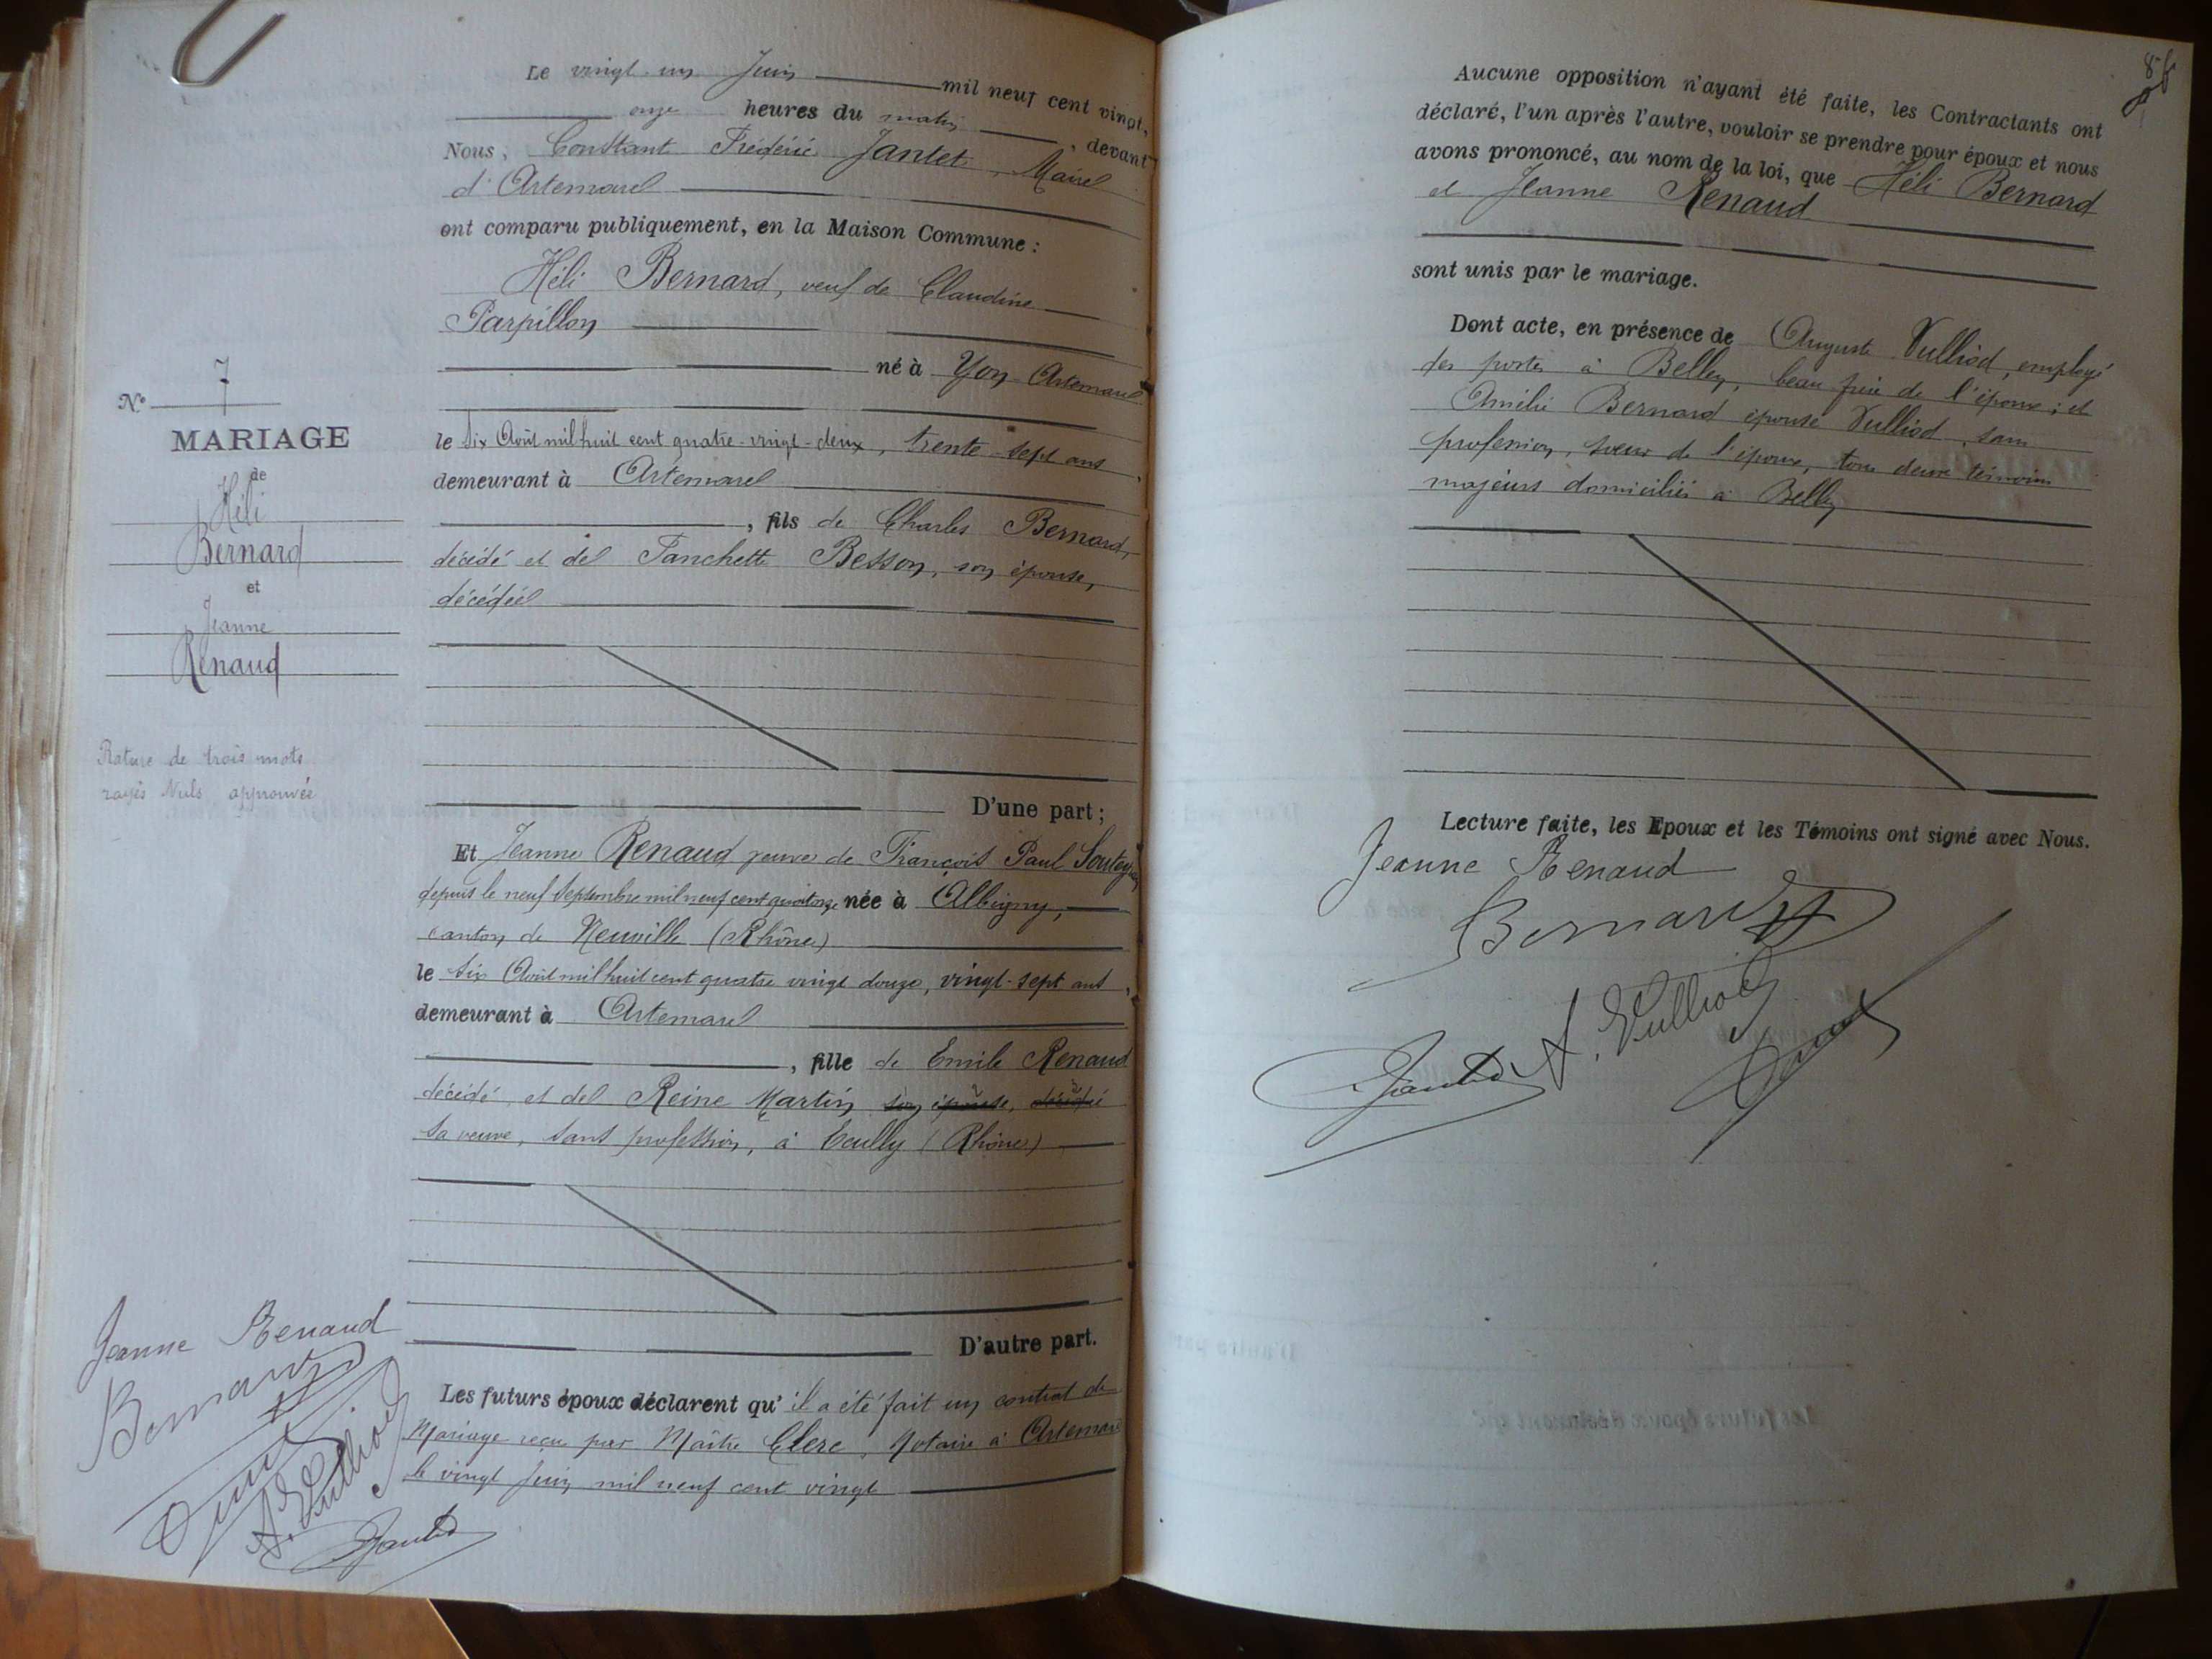 Le vingt un Juin mil neuf cent vingt,
onze heures du matin, devant
Nous, Constant Frédéric Jantet, Maire
d'Artemare
ont comparu publiquement, en la Maison Commune :
Héli Bernard, veuf de Claudine
Parpillon
né à Yon Artemare
le six Août mil huit cent quatre-vingt-deux, trente-sept ans
demeurant à Artemare
, fils de Charles Bernard,
décédé et de Fanchette Besson, son épouse,
décédée
D'une part ;
N° 7
MARIAGE
de
Héli
Bernard
et
Jeanne
Renaud
Rature de trois mots
rayés Nuls approuvée
Et Jeanne Renaud veuve de François Paul
depuis le neuf Septembre mil neuf cent quatorze née à Albigny,
canton de Neuville (Rhône)
le six Août mil huit cent quatre vingt douze, vingt-sept ans,
demeurant à Artemare
, fille de Emile Renaud
décédé et de Reine Martin son épouse, décédé
sa veuve, sans profession, à Ecully (Rhône)
D'autre part.
Les futurs époux déclarent qu'il a été fait un contrat de
Mariage reçu par Maître Clerc, Notaire à Artemare
le vingt Juin mil neuf cent vingt
Jeanne Renaud
Bernard
A. Vulliod
Jantet
Aucune opposition n'ayant été faite, les Contractants ont
déclaré, l'un après l'autre, vouloir se prendre pour époux et nous
avons prononcé, au nom de la loi, que Héli Bernard
et Jeanne Renaud
sont unis par le mariage.
Dont acte, en présence de Auguste Vulliod, employé
des postes à Belley, beau frère de l'époux ; et
Amélie Bernard épouse Vulliod, sans
profession, sœur de l'époux, tous deux témoins
majeurs domiciliés à Belley
Lecture faite, les Epoux et les Témoins ont signé avec Nous.
Jeanne Renaud
Bernard
A. Vulliod
Jantet